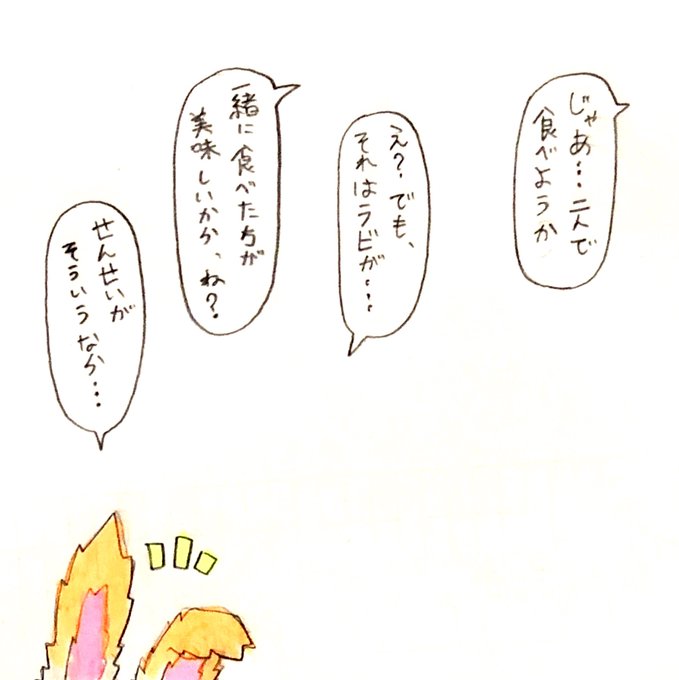 じゃあ…二人で
食べようか
え?でも、
それはラビが…
一緒に食べた方が
美味しいから、ね?
せんせいが
そういうなら…